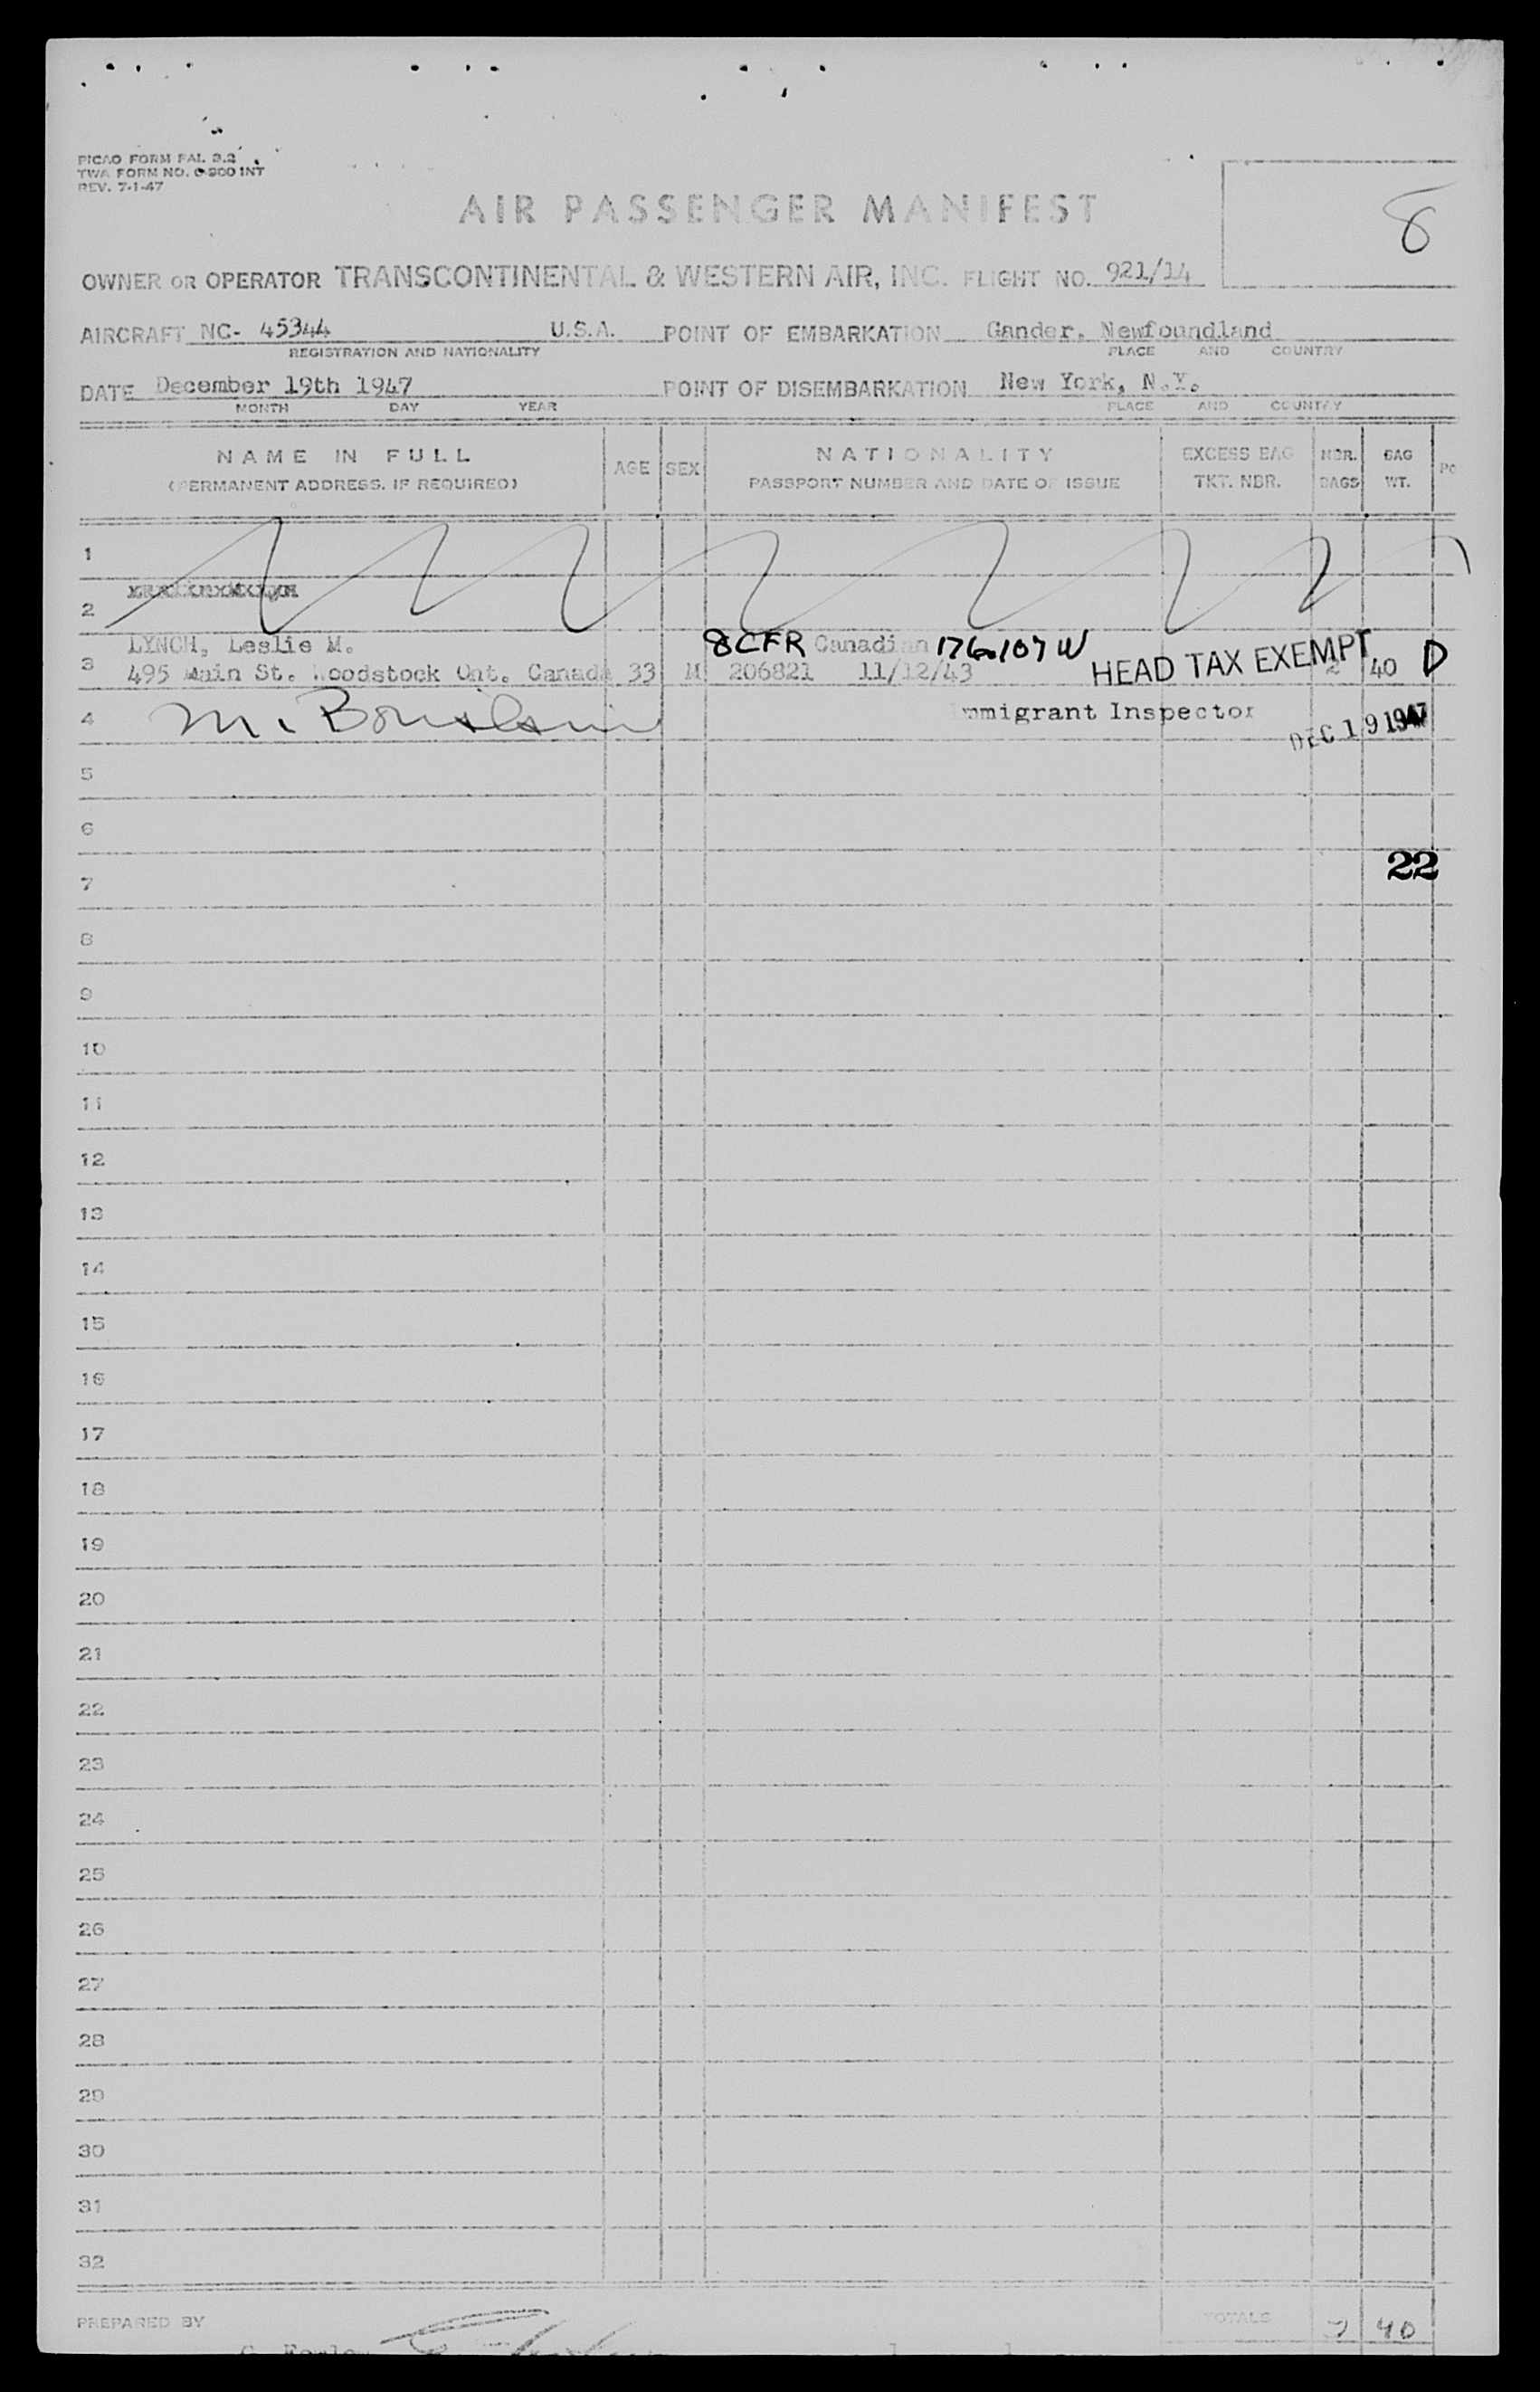 PICAO FORM FAL 9.2
TWA FORM NO. O-900 INT
REV. 7-1-47
AIR PASSENGER MANIFEST
8
OWNER OR OPERATOR TRANSCONTINENTAL & WESTERN AIR, INC. FLIGHT NO. 921/14
AIRCRAFT NC- 45344 U.S.A. POINT OF EMBARKATION Gander, Newfoundland
REGISTRATION AND NATIONALITY PLACE AND COUNTRY
DATE December 19th 1947 POINT OF DISEMBARKATION New York, N.Y.
MONTH DAY YEAR PLACE AND COUNTRY
NAME IN FULL AGE SEX NATIONALITY EXCESS BAG NBR. BAG
(PERMANENT ADDRESS, IF REQUIRED) PASSPORT NUMBER AND DATE OF ISSUE TKT. NBR. BAGS WT.
1
2
LYNCH, Leslie M. 8CFR Canadian 176.107 W
3 495 Main St. Woodstock Ont. Canada 33 M 206821 11/12/43 HEAD TAX EXEMPT 2 40 D
4 M. Immigrant Inspector DEC 19 1947
5
6
22
7
8
9
10
11
12
13
14
15
16
17
18
19
20
21
22
23
24
25
26
27
28
29
30
31
32
PREPARED BY TOTALS 2 40